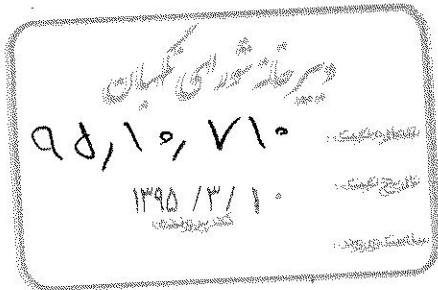 دبیرخانه شورای نگهبان
شماره ثبت: ۹۵,۱۰,۷۱۰
تاریخ ثبت: ۱۳۹۵/۳/۱۰
کد پرونده:
ساعت ورود: